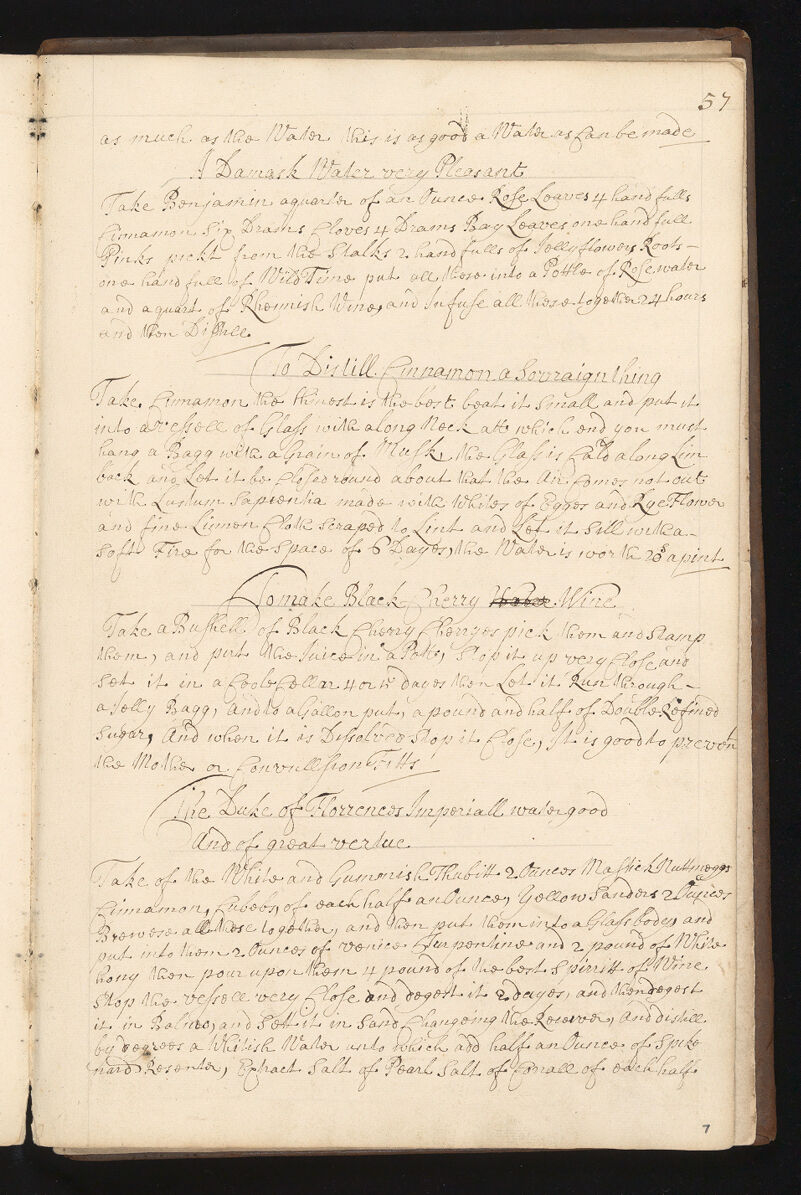 57
as much as the Water this is as good a Water as Can be made
A Damask Water very Pleasant
Take Benjamin a quarter of an Ounce Rose Leaves 4 hand fulls
Cinnamon Six Drams Cloves 4 Drams Bay Leaves one hand full
Pinks pickt from the Stalks 2 hand fulls of Jellyflowers Roots -
one hand full of Wild Time put all these into a Pottle of Rose water
and a quart of Rhennish Wine, and Infuse all these together 24 hours
and then Distill
To Distill Cinnamon a Sovraign thing
Take Cinnamon the thinest is the best beat it Small and put it
into a Vessell of Glass with a long Neck att which end you must
hang a Bagg with a Grain of Musk, the Glass is Cald a long Lim
back and Let it be Closed round about that the Air Comes not out
with Lustum Sapientia made with Whites of Egges and Rye Flower
and fine Linnen Cloth Scraped to Lint and Let it Still with a -
Soft Fire for the Space of 6 Dayes, the Water is worth 20s a pint
To make Black Cherry Wine
Take a Bushell of Black Cherry Cherryes pick them and Stamp
them, and put the Juice in a Pott, Stop it up very Close and
Set it in a Coole Cellar 4 or 5 dayes then Let it Run through -
a Jelly Bagg, and to a Gallon put, a pound and half of Double Refined
Sugar, And when it is Dissolved Stop it Close, It is good to prevent
the Mother or Convullsion Fitts
The Duke of Florrences Imperiall water good
And of great vertue
Take of the White and Gummish 2 Ounces Mastick Nuttmeggs
Cinnamon, Cubebs, of each half an Ounce, Yellow Sanders 2 Ounces
Brewese all these together, and then put them into a Glass body, and
put into them 2 Ounces of Venice Turpentine and 2 pound of White
hony then pour upon them 4 pound of the best Spirritt of Wine
Stop the vessell very Close and degest it 2 dayes, and then degest
it in Balneo, and Sett it in Sand Changeing the Receiver, And distill
by degrees a Whitish Water unto which add half an Ounce of Spike
nard Extract Salt of Pearl Salt of Corrall of each half
7